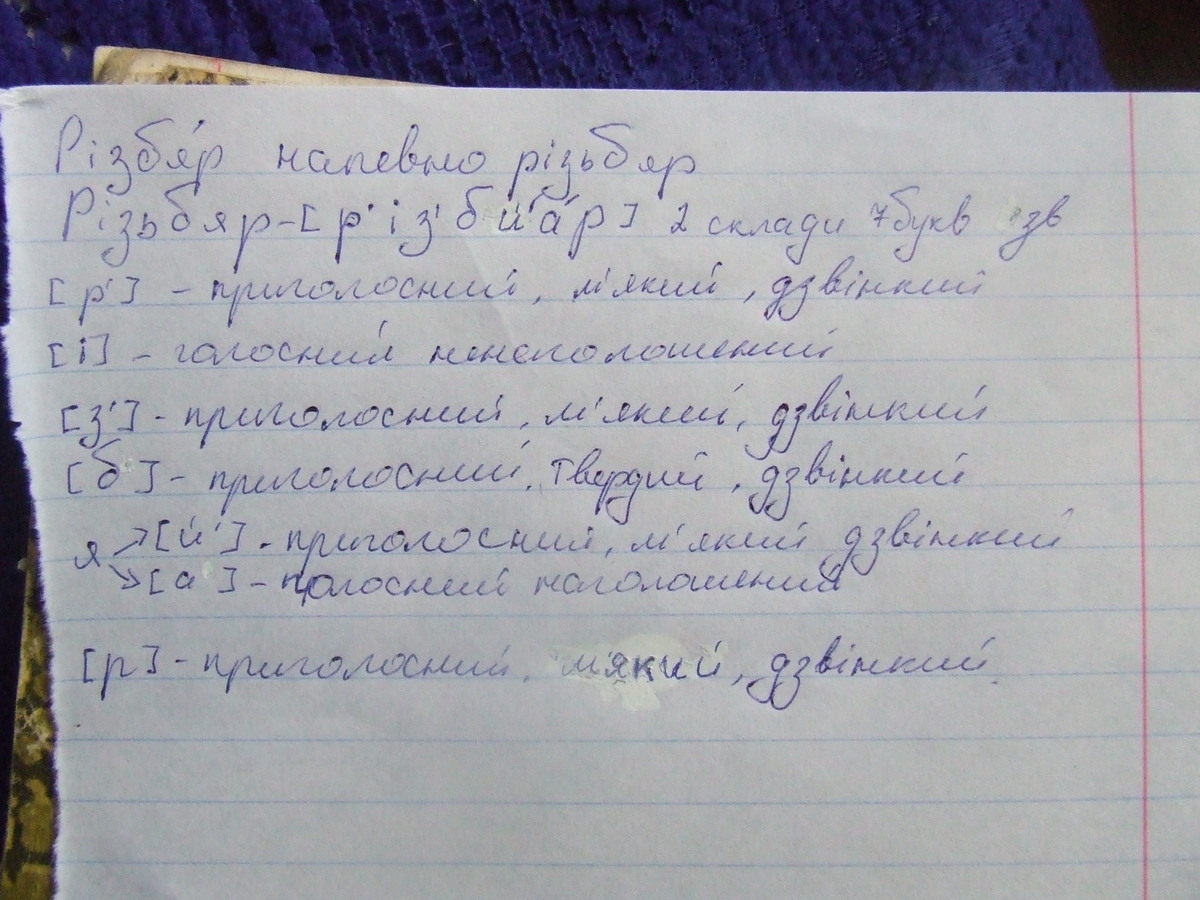 Різбя́р напевно різьбяр
Різьбяр-[р' і з' б й' а́ р] 2 склади 7 букв зв
[р'] - приголосний, м'який, дзвінкий
[і] - голосний ненаголошений
[з'] - приголосний, м'який, дзвінкий
[б] - приголосний, твердий, дзвінкий
я → [й'] - приголосний, м'який, дзвінкий
→ [а] - голосний наголошений
[р] - приголосний, м'який, дзвінкий